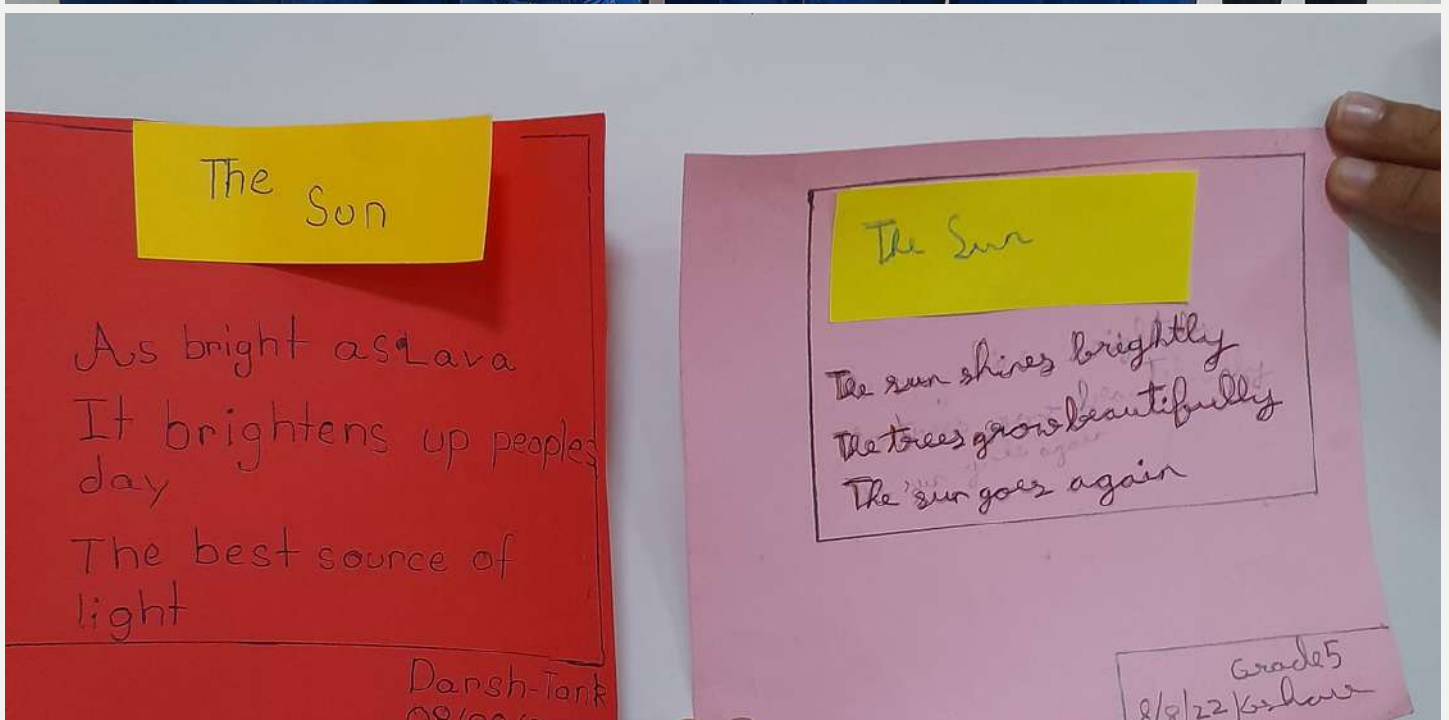 The
Sun
As bright as Lava
It brightens up peoples
day
The best source of
light
Darsh-Tank
The Sun
The sun shines brightly
The trees grow beautifully
The sun goes again
Grade5
8/8/22 Keshav